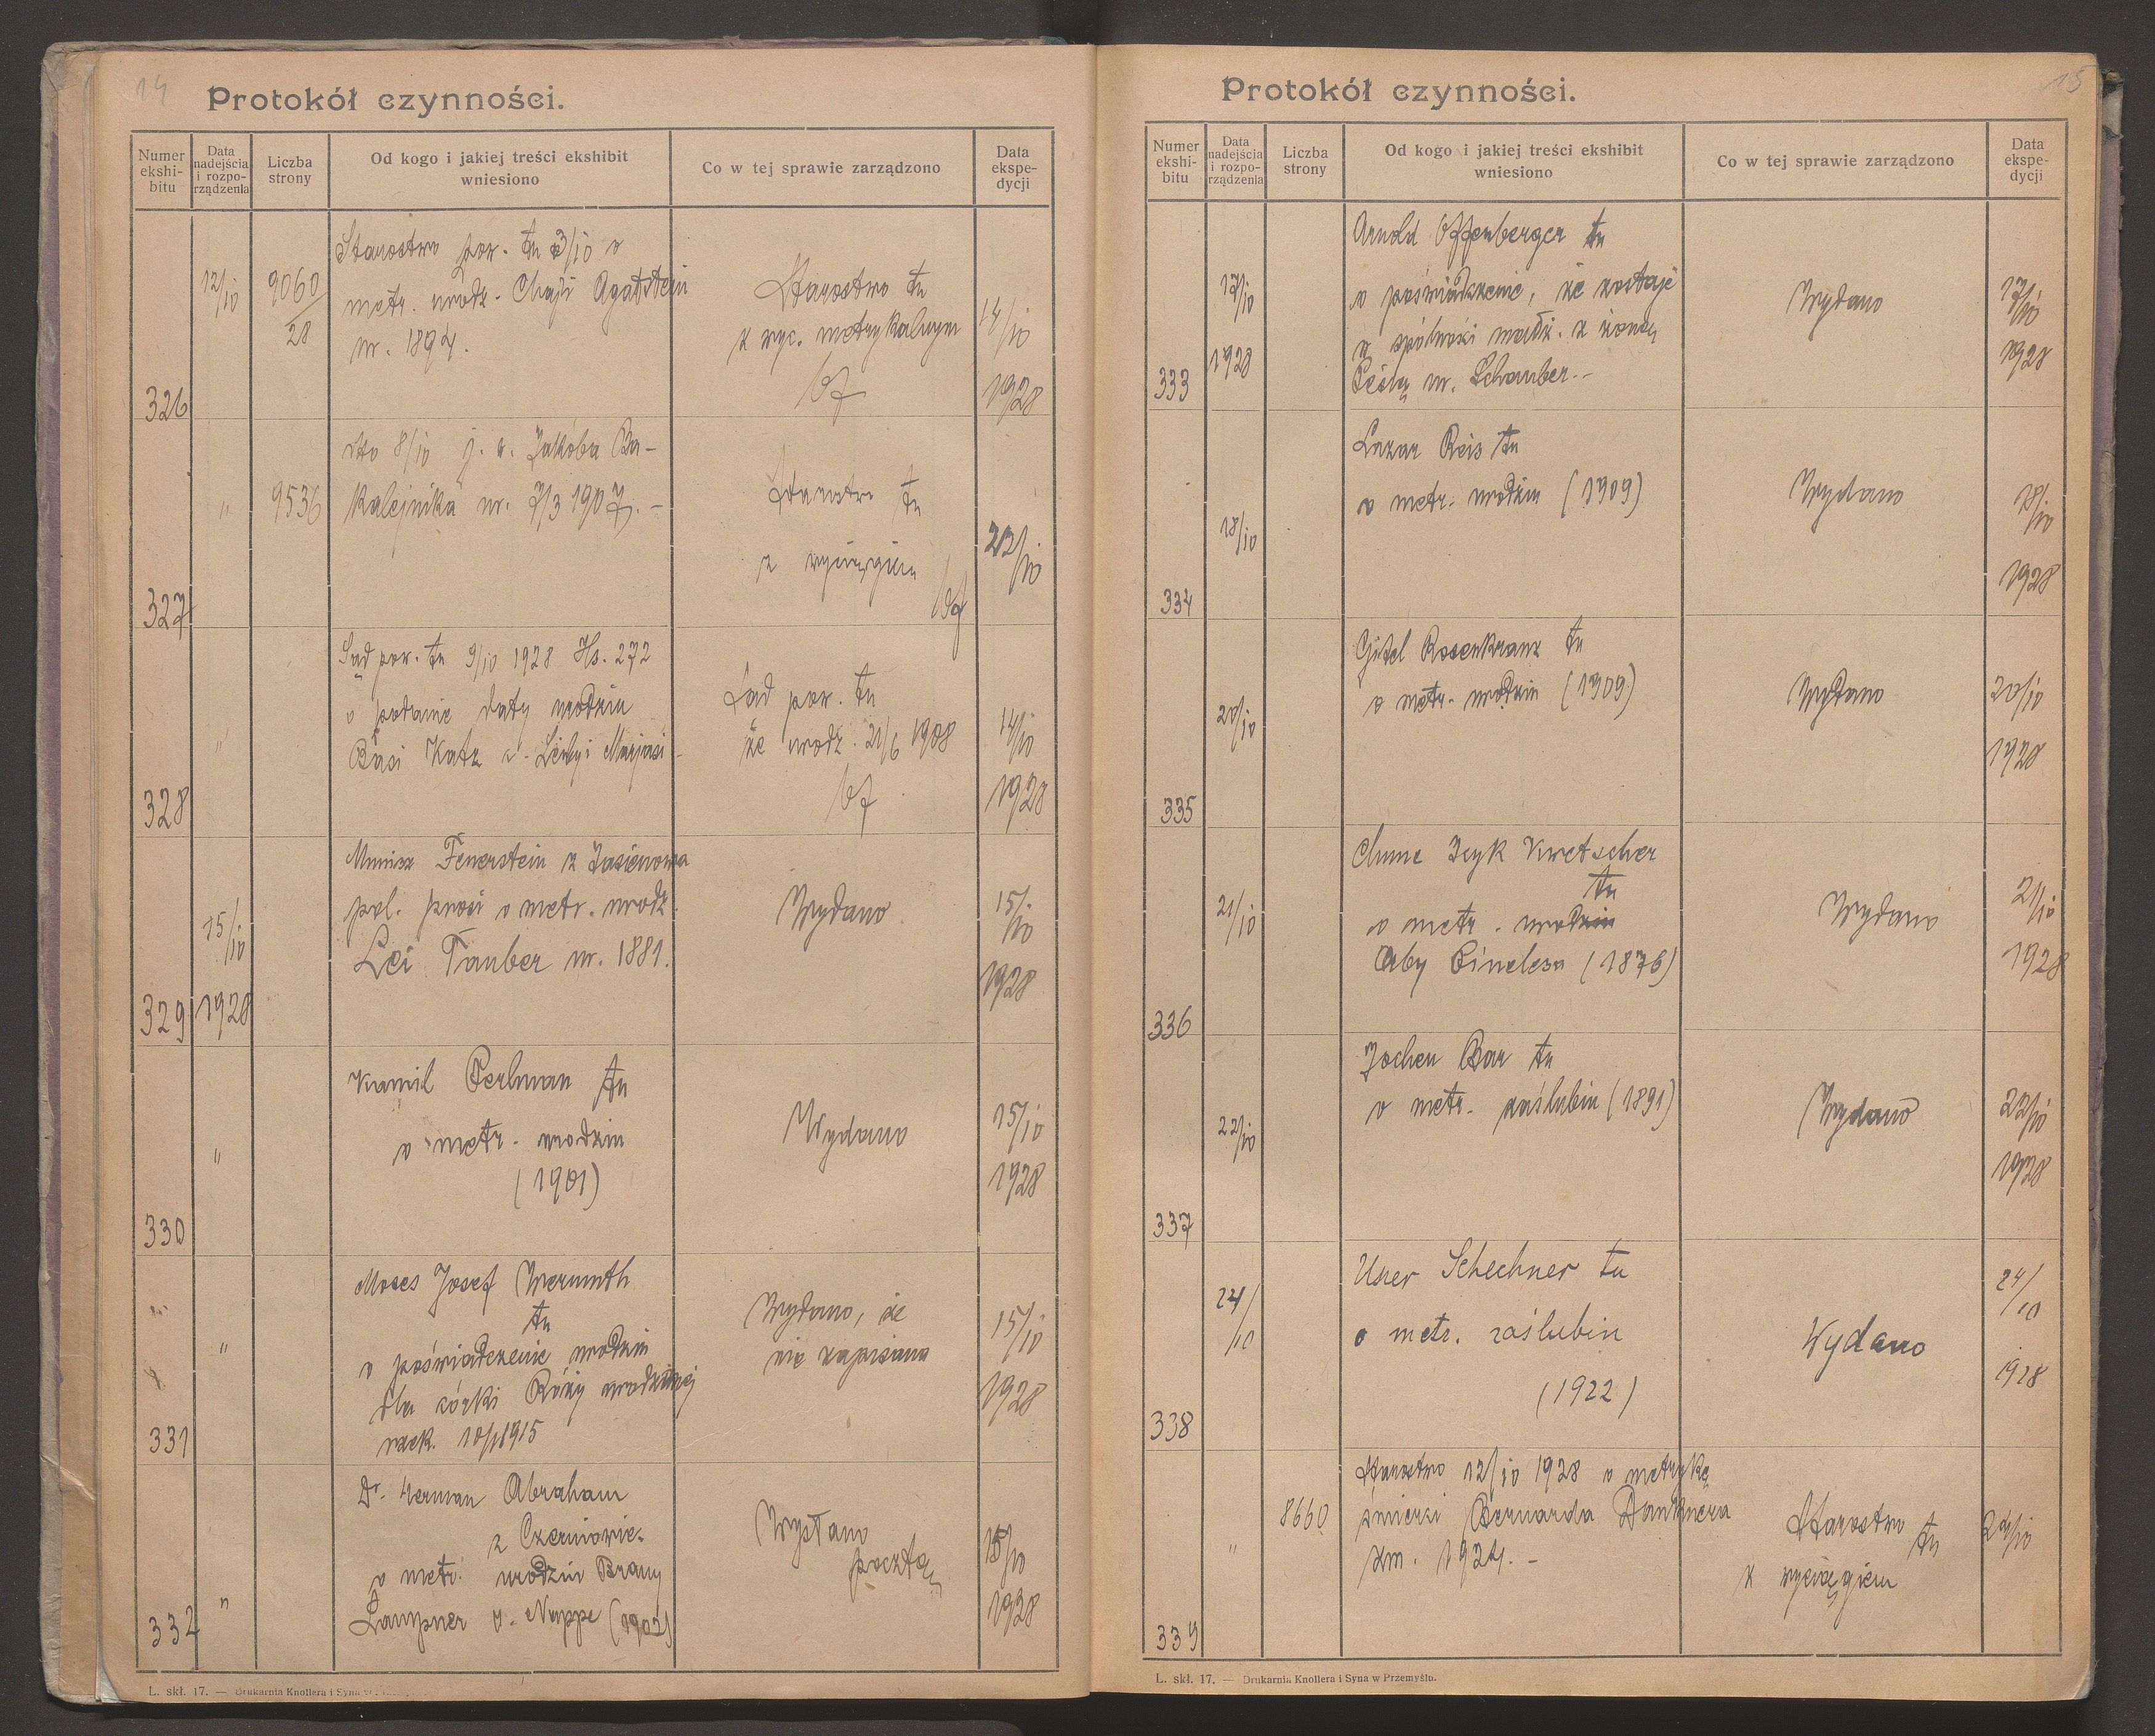 14
Protokół czynności.
Numer ekshi-bitu
Data nadejścia i rozpo-rządzenia
Liczba strony
Od kogo i jakiej treści ekshibit wniesiono
Co w tej sprawie zarządzono
Data ekspe-dycji
326
12/10
9060/28
Starostwo pow. tu 3/10 o
metr. urodz. Chaji Agatstein
ur. 1894.
Starostwo tu
z wyc. metrykalnym
14/10
1928
327
"
9536
dto 8/10 j. w. Jakóba Ba-
kalejnika ur. 7/3 1907. -
Starostwo tu
z wyciągiem
22/10
328
"
Sąd pow. tu 9/10 1928 Hs. 272
o podanie daty urodzin
Basi Katz c. Leiby i Marjasi
Sąd pow. tu
że urodz. 21/6 1908
14/10
1928
329
15/10
1928
Munisz Feuerstein z Jasienowa
pol. prosi o metr. urodz.
Lei Tauber ur. 1881.
Wydano
15/10
1928
330
"
Kamil Perlman tu
o metr. urodzin
(1901)
Wydano
15/10
1928
331
"
Moses Josef Wermuth
tu
o poświadczenie urodzin
dla córki Róży urodzonej
rzek. 10/1 1915
Wydano, że
nie zapisana
15/10
1928
332
"
Dr. Herman Abraham
z Czerniowic
o metr. urodzin Brany
Lampner v. Nuppe (1902)
Wysłano
pocztą
15/10
1928
L. skł. 17. — Drukarnia Knollera i Syna
15
Protokół czynności.
Numer ekshi-bitu
Data nadejścia i rozpo-rządzenia
Liczba strony
Od kogo i jakiej treści ekshibit wniesiono
Co w tej sprawie zarządzono
Data ekspe-dycji
333
17/10
1928
Arnold Offenberger tu
o poświadczenie, że zostaje
w spólności małż. z żoną
Pesią ur. Schauber. -
Wydano
17/10
1928
334
18/10
Lazar Reis tu
o metr. urodzin (1909)
Wydano
18/10
1928
335
20/10
Gitel Rosenkranz tu
o metr. urodzin (1909)
Wydano
20/10
1928
336
21/10
Chune Icyk Kwetscher
tu
o metr. urodzin
Aby Einelesa (1876)
Wydano
21/10
1928
337
22/10
Jochen Bar tu
o metr. zaślubin (1891)
Wydano
22/10
1928
338
24/10
Uszer Schechner tu
o metr. zaślubin
(1922)
Wydano
24/10
1928
339
"
8660
Starostwo 12/10 1928 o metrykę
śmierci Bernarda Danknera
zm. 1924. -
Starostwo tu
z wyciągiem
24/10
L. skł. 17. — Drukarnia Knollera i Syna w Przemyślu.